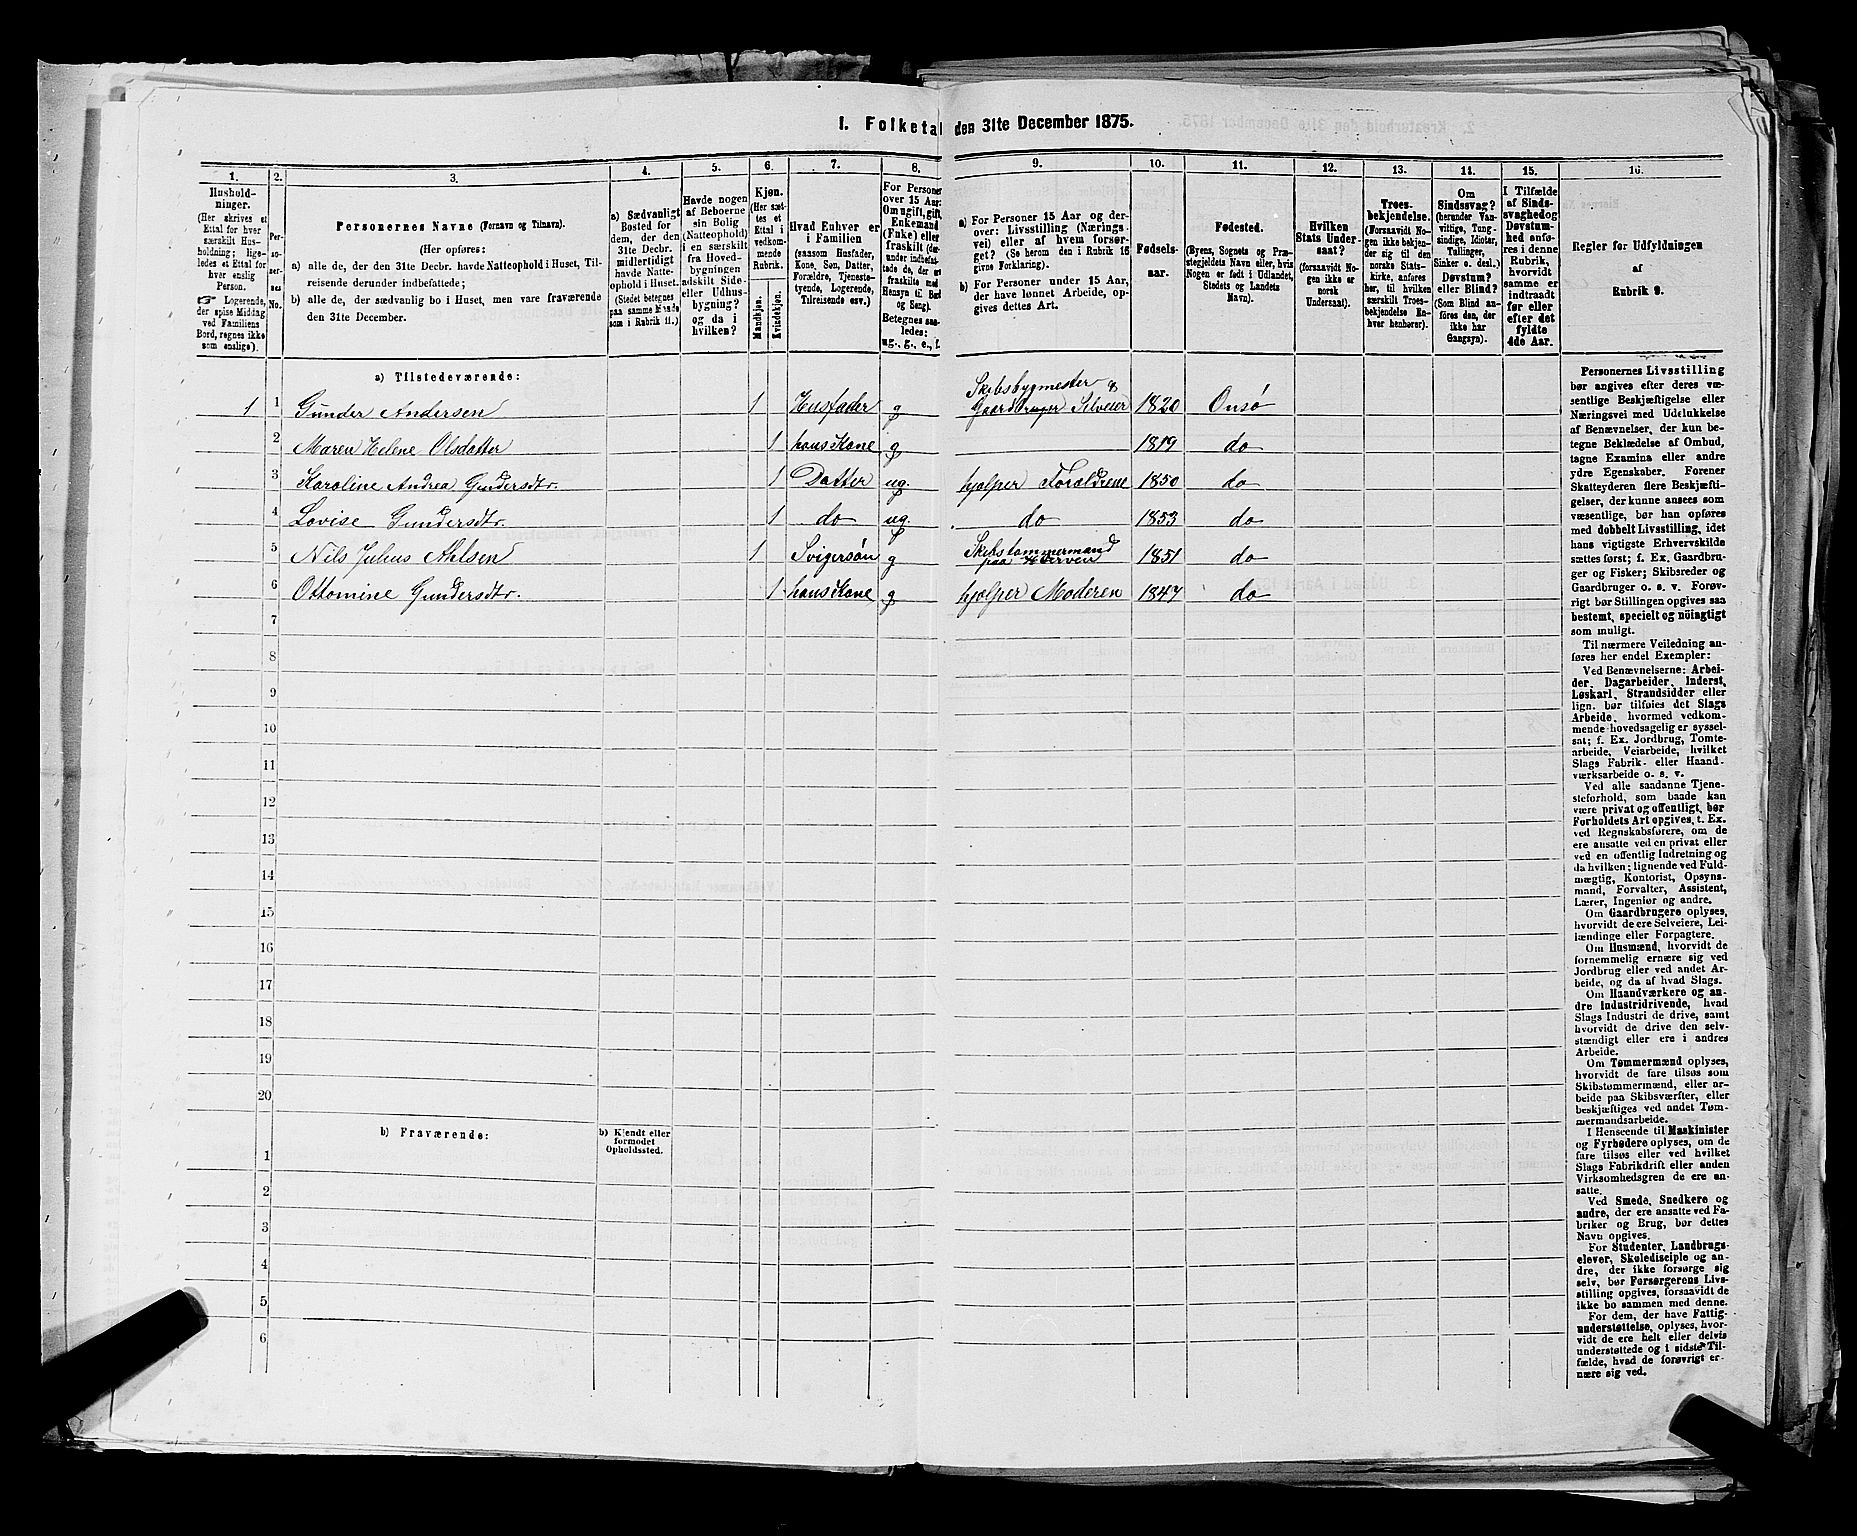 1. Folketal den 31te December 1875.
1. 2. 3. 4. 5. 6. 7. 8. 9. 10. 11. 12. 13. 14. 15. 16.
Hushold-
ninger.
(Her skrives et
Ettal for hver
særskilt Hus-
holdning; lige-
ledes et Ettal for
hver enslig
Person.
☞ Logerende,
der spise Middag
ved Familiens
Bord, regnes ikke
som enslige).
Per-
so-
ner-
nes
No.
Personernes Navne (Fornavn og Tilnavn).
(Her opføres:
a) alle de, der den 31te Decbr. havde Natteophold i Huset, Til-
reisende derunder indbefattede;
b) alle de, der sædvanlig bo i Huset, men vare fraværende
den 31te December.
a) Sædvanligt
Bosted for
dem, der den
31te Decbr.
midlertidigt
havde Natte-
ophold i Huset.
(Stedet betegnes
paa samme Maade
som i Rubrik 11.)
Havde nogen
af Beboerne
sin Bolig
(Natteophold)
i en særskilt
fra Hoved-
bygningen
adskilt Side-
eller Udhus-
bygning?
og da i
hvilken?
Kjøn.
(Her sæt-
tes et
Ettal i
vedkom-
mende
Rubrik.
Mandkjøn.
Kvindekjøn.
Hvad Enhver er
i Familien
(saasom Husfader,
Kone, Søn, Datter,
Forældre, Tjeneste-
tyende, Logerende,
Tilreisende osv.)
For Personer
over 15 Aar:
Om ugift, gift,
Enkemand
(Enke) eller
fraskilt (der-
under indbefat-
tede de, der er
fraskilte med
Hensyn til Bord
og Seng).
Betegnes saa-
ledes:
ug., g., e., f.
a) For Personer 15 Aar og der-
over: Livsstilling (Nærings-
vei) eller af hvem forsør-
get? (Se herom den i Rubrik 16
givne Forklaring).
b) For Personer under 15 Aar,
der have lønnet Arbeide, op-
gives dettes Art.
Fødsels-
aar.
Fødested.
(Byens, Sognets og Præ-
stegjeldets Navn eller, hvis
Nogen er født i Udlandet,
Stedets og Landets
Navn).
Hvilken
Stats Under-
saat?
(forsaavidt No-
gen ikke er
norsk
Undersaat).
Troes-
bekjendelse.
(Forsaavidt No-
gen ikke bekjen-
der sig til den
norske Stats-
kirke, anføres
her, til hvilken
særskilt Troes-
bekjendelse En-
hver henhører).
Om
Sindssvag?
(herunder Van-
vittige, Tung-
sindige, Idioter,
Tullinger,
Sinker o. desl.)
Døvstum?
eller Blind?
(Som Blind an-
føres den, der
ikke har
Gangsyn).
I Tilfælde
af Sinds-
svaghed og
Døvstum-
hed anfø-
res i denne
Rubrik,
hvorvidt
samme er
indtraadt
før eller
efter det
fyldte
4de Aar.
Regler for Udfyldningen
af
Rubrik 9.
a) Tilstedeværende:
1 1 Gunder Andersen 1 Husfader g Skibsbygmester & Gaardbruger Selveier 1820 Onsø
2 Maren Helene Olsdatter 1 hans Kone g 1819 do
3 Karoline Andrea Gundersdtr. 1 Datter ug. hjælper Forældrene 1850 do
4 Lovise Gundersdtr. 1 do ug. do 1853 do
5 Nils Julius Ahlsen 1 Svigersøn g Skibstømmermand paa Værven 1851 do
6 Ottomine Gundersdtr. 1 hans Kone g hjælper Moderen 1847 do
7
8
9
10
11
12
13
14
15
16
17
18
19
20
b) Fraværende:
b) Kjendt eller
formodet
Opholdssted.
1
2
3
4
5
6
Personernes Livsstilling
bør angives efter deres væ-
sentlige Beskjæftigelse eller
Næringsvei med Udelukkelse
af Benævnelser, der kun be-
tegne Beklædelse af Ombud,
tagne Examina eller andre
ydre Egenskaber. Forener
Skatteyderen flere Beskjæfti-
gelser, der kunne ansees som
væsentlige, bør han opføres
med dobbelt Livsstilling, idet
hans vigtigste Erhvervskilde
sættes først; f. Ex. Gaardbru-
ger og Fisker; Skibsreder og
Gaardbruger o. s. v. Forøv-
rigt bør Stillingen opgives saa
bestemt, specielt og nöiagtigt
som muligt.
Til nærmere Veiledning an-
føres her endel Exempler:
Ved Benævnelserne: Arbei-
der, Dagarbeider, Inderst,
Løskarl, Strandsidder eller
lign. bør tilføies det Slags
Arbeide, hvormed vedkom-
mende hovedsagelig er syssel-
sat; f. Ex. Jordbrug, Tomte-
arbeide, Veiarbeide, hvilket
Slags Fabrik- eller Haand-
værksarbeide o. s. v.
Ved alle saadanne Tjene-
steforhold, som baade kan
være privat og offentligt, bør
Forholdets Art opgives, t. Ex.
ved Regnskabsførere, om de
ere ansatte ved en privat eller
ved en offentlig Indretning og
da hvilken; lignende ved Fuld-
mægtig, Kontorist, Opsyns-
mand, Forvalter, Assistent,
Lærer, Ingeniør og andre.
Om Gaardbrugere oplyses,
hvorvidt de ere Selveiere, Lei-
lændinge eller Forpagtere.
Om Husmænd, hvorvidt de
fornemmelig ernære sig ved
Jordbrug eller ved andet Ar-
beide, og da af hvad Slags.
Om Haandværkere og an-
dre Industridrivende, hvad
Slags Industri de drive, samt
hvorvidt de drive den selv-
stændigt eller ere i andres
Arbeide.
Om Tømmermænd oplyses,
hvorvidt de fare tilsøs som
Skibstømmermænd, eller ar-
beide paa Skibsværfter, eller
beskjæftiges ved andet Tøm-
mermandsarbeide.
I Henseende til Maskinister
og Fyrbødere oplyses, om de
fare tilsøs eller ved hvilket
Slags Fabrikdrift eller anden
Virksomhedsgren de ere an-
satte.
Ved Smede, Snedkere og
andre, der ere ansatte ved Fa-
briker og Brug, bør dettes
Navn opgives.
For Studenter, Landbrugs-
elever, Skoledisciple og an-
dre, der ikke forsørge sig
selv, bør Forsørgerens Livs-
stilling opgives, forsaavidt de
ikke bo sammen med denne.
For dem, der have Fattig-
understøttelse, oplyses, hvor-
vidt de ere helt eller delvis
understøttede og i sidste Til-
fælde, hvad de forøvrigt er-
nære sig ved.